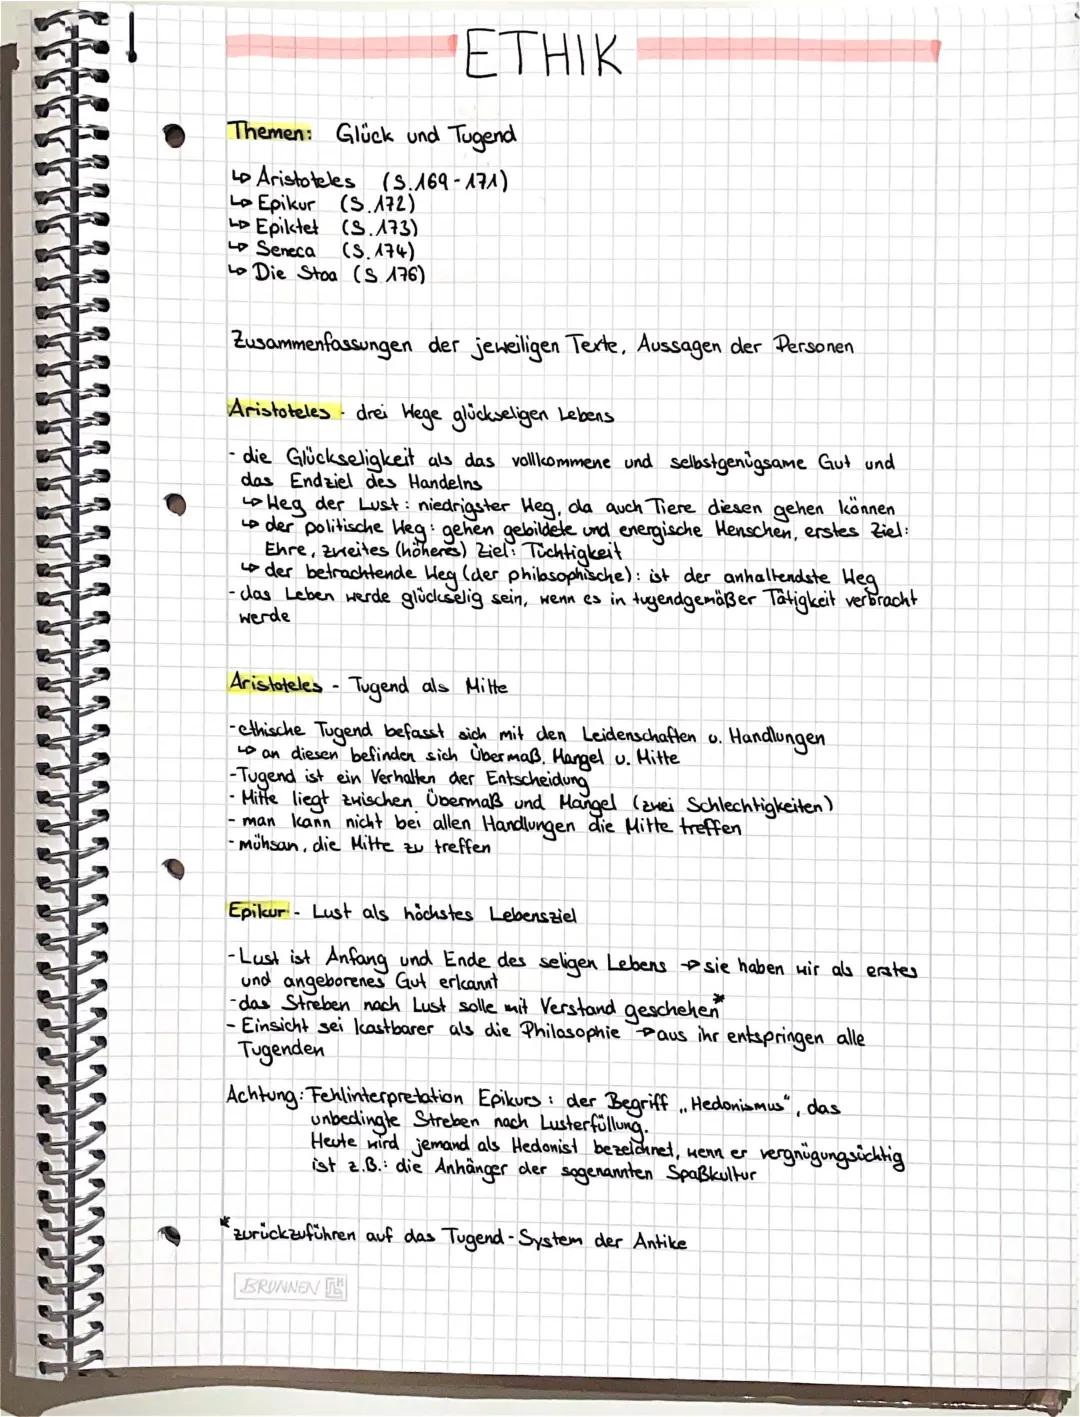 ETHIK
Themen: Glück und Tugend
↳ Aristoteles (S.169-171)
↳ Epikur (S.172)
↳ Epiktet (S.173)
↳ Seneca (S.174)
↳ Die Stoa (S 176)
Zusammenfassungen der jeweiligen Texte, Aussagen der Personen
Aristoteles - drei Wege glückseligen Lebens
- die Glückseligkeit als das vollkommene und selbstgenügsame Gut und
das Endziel des Handelns
↳ Weg der Lust: niedrigster Weg, da auch Tiere diesen gehen können
↳ der politische Weg: gehen gebildete und energische Menschen, erstes Ziel:
Ehre, zweites (höheres) Ziel: Tüchtigkeit
↳ der betrachtende Weg (der philosophische): ist der anhaltendste Weg
- das Leben werde glückselig sein, wenn es in tugendgemäßer Tätigkeit verbracht
werde
Aristoteles - Tugend als Mitte
- ethische Tugend befasst sich mit den Leidenschaften u. Handlungen
↳ an diesen befinden sich Übermaß, Mangel u. Mitte
- Tugend ist ein Verhalten der Entscheidung
- Mitte liegt zwischen Übermaß und Mangel (zwei Schlechtigkeiten)
- man kann nicht bei allen Handlungen die Mitte treffen
- mühsan, die Mitte zu treffen
Epikur - Lust als höchstes Lebensziel
- Lust ist Anfang und Ende des seligen Lebens → sie haben wir als erstes
und angeborenes Gut erkannt
- das Streben nach Lust solle mit Verstand geschehen*
- Einsicht sei kostbarer als die Philosophie → aus ihr entspringen alle
Tugenden
Achtung: Fehlinterpretation Epikurs: der Begriff „Hedonismus", das
unbedingte Streben nach Lusterfüllung.
Heute wird jemand als Hedonist bezeichnet, wenn er vergnügungsüchtig
ist z.B.: die Anhänger der sogenannten Spaßkultur
* zurückzuführen auf das Tugend-System der Antike
BRUNNEN